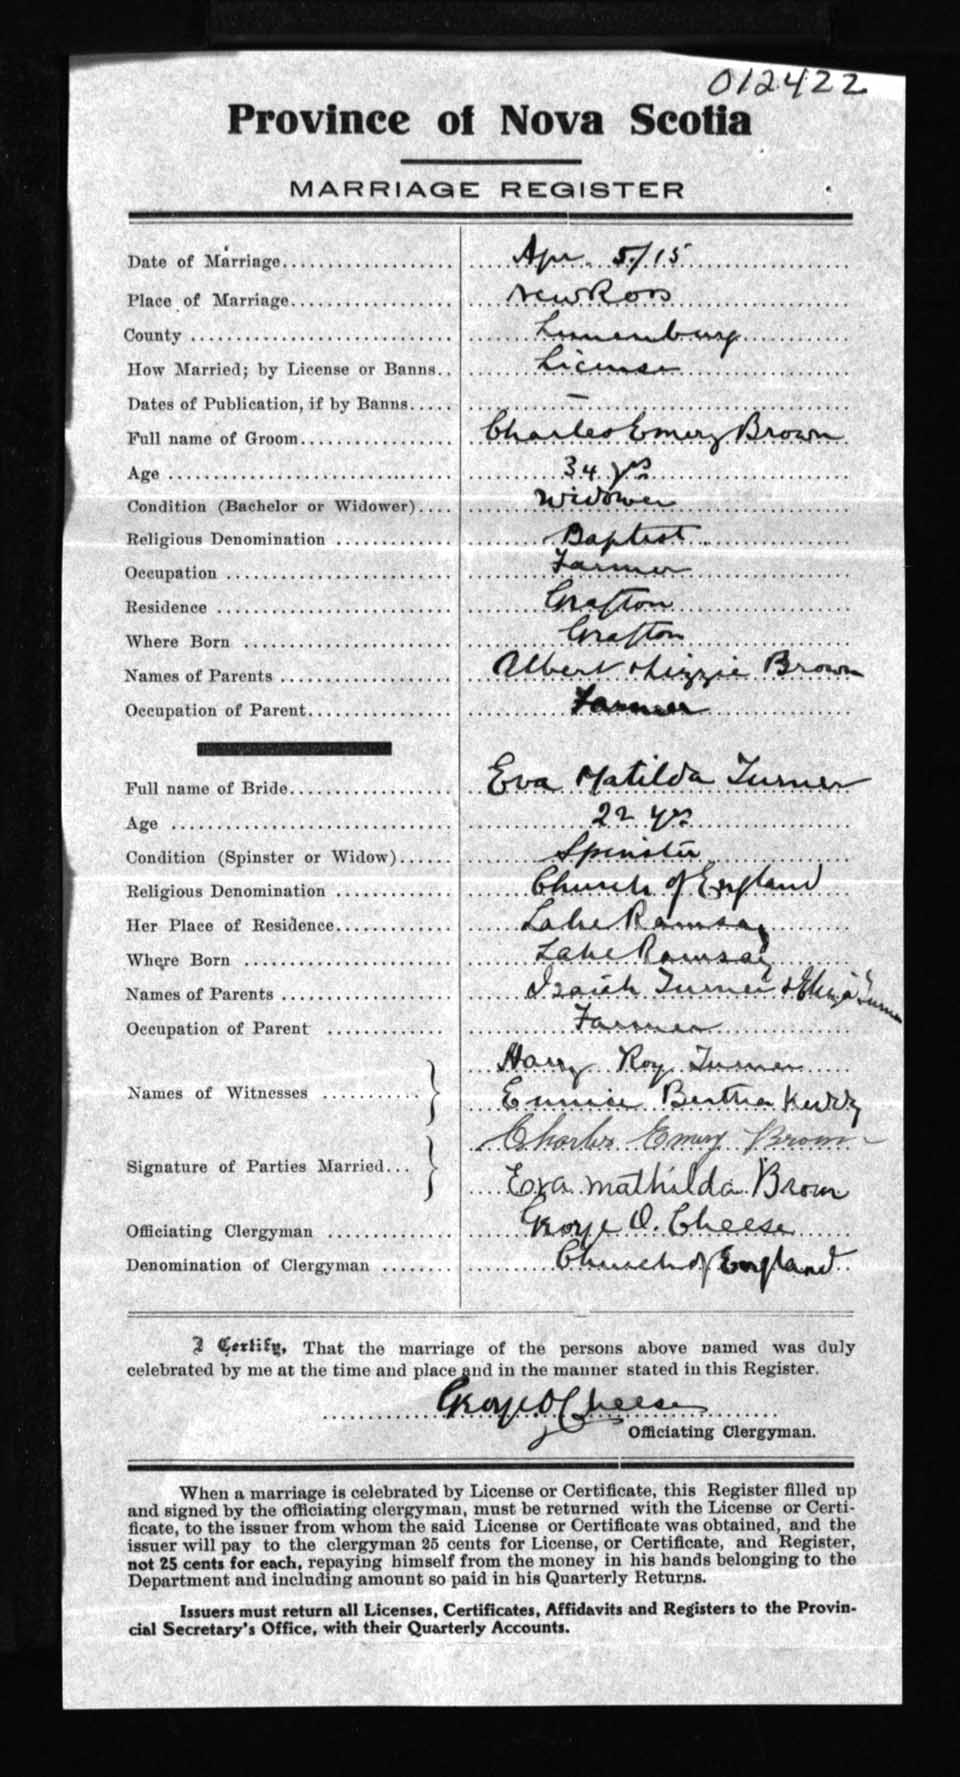 012422
Province of Nova Scotia
MARRIAGE REGISTER
Date of Marriage Apr. 5/15
Place of Marriage New Ross
County Lunenburg
How Married; by License or Banns License
Dates of Publication, if by Banns —
Full name of Groom Charles Emery Brown
Age 34 yrs
Condition (Bachelor or Widower) Widower
Religious Denomination Baptist
Occupation Farmer
Residence Grafton
Where Born Grafton
Names of Parents Albert & Lizzie Brown
Occupation of Parent Farmer
Full name of Bride Eva Matilda Turner
Age 22 yrs
Condition (Spinster or Widow) Spinster
Religious Denomination Church of England
Her Place of Residence Lake Ramsay
Where Born Lake Ramsay
Names of Parents Isaiah Turner & Eliza Turner
Occupation of Parent Farmer
Names of Witnesses Harry Roy Turner
Eunice Bertha Keddy
Signature of Parties Married Charles Emery Brown
Eva Mathilda Brown
Officiating Clergyman George D. Cheese
Denomination of Clergyman Church of England
I Certify, That the marriage of the persons above named was duly
celebrated by me at the time and place and in the manner stated in this Register.
George D Cheese
Officiating Clergyman.
When a marriage is celebrated by License or Certificate, this Register filled up
and signed by the officiating clergyman, must be returned with the License or Certi-
ficate, to the issuer from whom the said License or Certificate was obtained, and the
issuer will pay to the clergyman 25 cents for License, or Certificate, and Register,
not 25 cents for each, repaying himself from the money in his hands belonging to the
Department and including amount so paid in his Quarterly Returns.
Issuers must return all Licenses, Certificates, Affidavits and Registers to the Provin-
cial Secretary's Office, with their Quarterly Accounts.